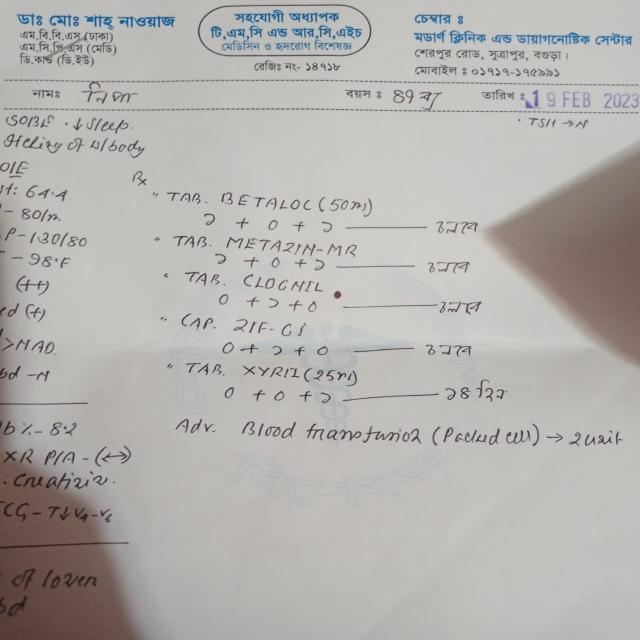 ডাঃ মোঃ শাহ্ নাওয়াজ
এম.বি.বি.এস (ঢাকা)
এম.সি.পি.এস (মেডি)
ডি.কার্ড (ডি.ইউ)
সহযোগী অধ্যাপক
টি,এম,সি এন্ড আর,সি,এইচ
মেডিসিন ও হৃদরোগ বিশেষজ্ঞ
রেজিঃ নং- ১৪৭১৮
চেম্বার ঃ
মডার্ণ ক্লিনিক এন্ড ডায়াগনোষ্টিক সেন্টার
শেরপুর রোড, সুত্রাপুর, বগুড়া।
মোবাইল ঃ ০১৭১৭-১৭৫৯৯১
নামঃ বয়স ঃ ৪৭ তারিখ ঃ 19 FEB 2023
TSH → N
↓ Sleep.
Body
O/E
Wt: 64.4
P - 80/m
BP-130/80
- 98°F
(++)
(+)
> NAD
Hb%- 8.2
CXR P/A - (↔)
S. Creatinin.
ECG - T↓ V4-V6
Rx
TAB. BETALOC (50m)
১ + ০ + ১ — চলবে
TAB. METAZIN-MR
১ + ০ + ১ — চলবে
TAB. CLOGNIL
০ + ১ + ০ — চলবে
CAP. ZIF-CI
০ + ১ + ০ — চলবে
TAB. XYRIL (25m)
০ + ০ + ১ — ১৪ দিন
Adv. Blood transfusion (Packed cell) → 2 unit